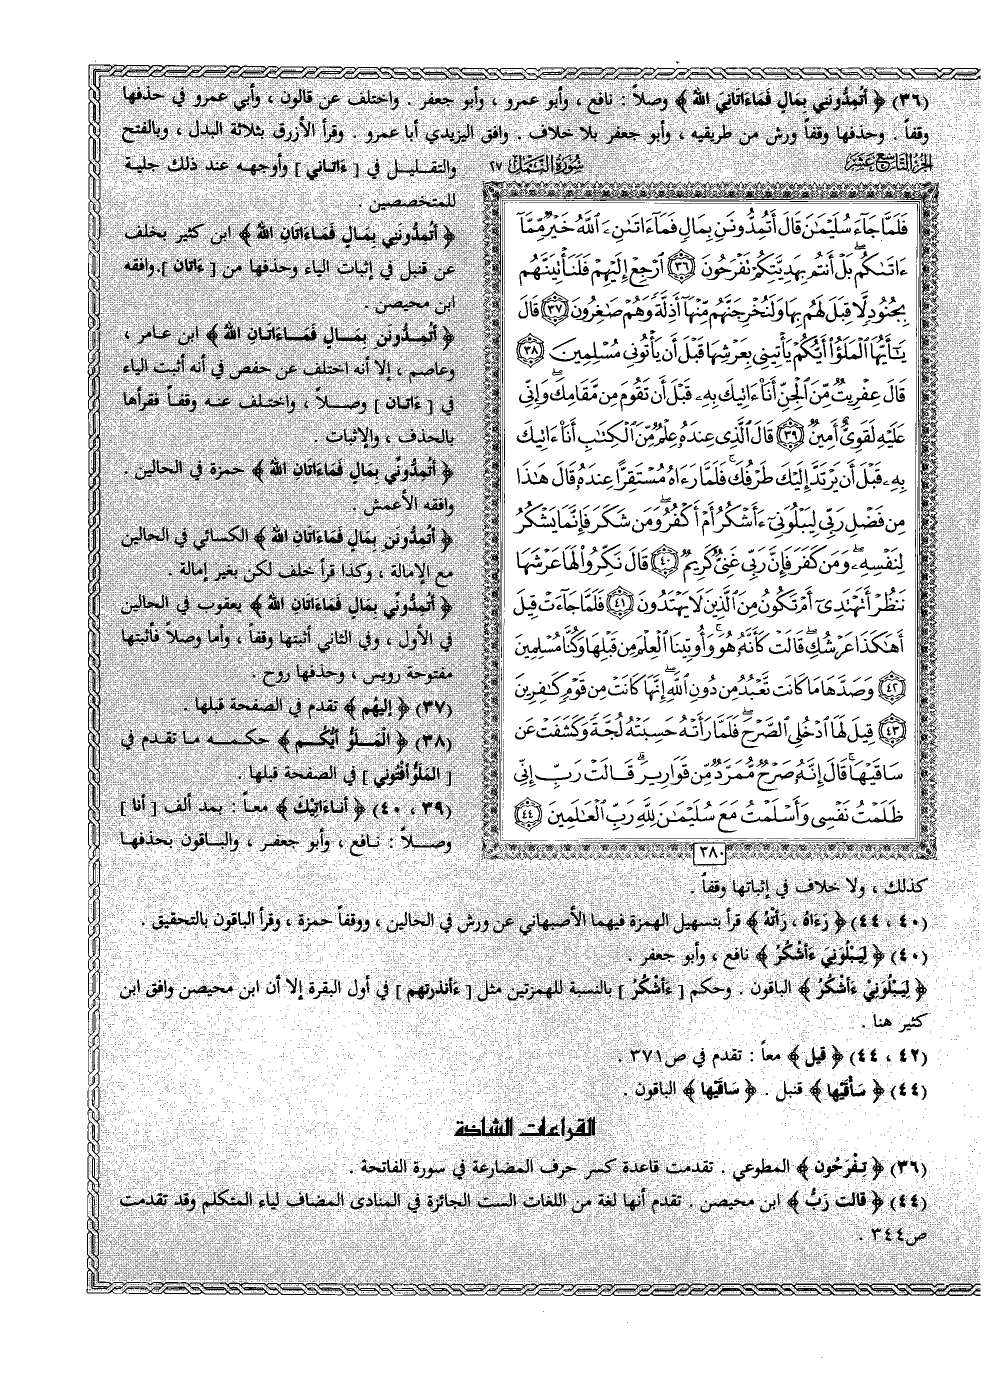 (٣٦) ﴿ أَتُمِدُّونَنِي بِمَالٍ فَمَاءَاتَانِيَ اللهُ ﴾ وصلاً : نافع ، وأبو عمرو ، وأبو جعفر . واختلف عن قالون ، وأبي عمرو في حذفها
وقفاً . وحذفها وقفاً ورش من طريقيه ، وأبو جعفر بلا خلاف . وافق اليزيدي أبا عمرو . وقرأ الأزرق بثلاثة البدل ، وبالفتح
والتقليل في [ ءَاتاني ] وأوجهه عند ذلك جلية
للمتخصصين .
﴿ أَتُمِدُّونَنِي بِمَالٍ فَمَاءَاتَانِ اللهُ ﴾ ابن كثير بخلف
عن قنبل في إثبات الياء وحذفها من [ ءَاتَان ] . وافقه
ابن محيصن .
﴿ أَتُمِدُّونَنِ بِمَالٍ فَمَاءَاتَانِ اللهُ ﴾ ابن عامر ،
وعاصم ، إلا أنه اختلف عن حفص في أنه أثبت الياء
في [ ءَاتَان ] وصلاً ، واختلف عنه وقفاً فقرأها
بالحذف ، والإثبات .
﴿ أَتُمِدُّونِّي بِمَالٍ فَمَاءَاتَانِ اللهُ ﴾ حمزة في الحالين .
وافقه الأعمش .
﴿ أَتُمِدُّونَنِ بِمَالٍ فَمَاءَاتَانِ اللهُ ﴾ الكسائي في الحالين
مع الإمالة ، وكذا قرأ خلف لكن بغير إمالة .
﴿ أَتُمِدُّونِّي بِمَالٍ فَمَاءَاتَانِ اللهُ ﴾ يعقوب في الحالين
في الأول ، وفي الثاني أثبتها وقفاً ، وأما وصلاً فأثبتها
مفتوحة رويس ، وحذفها روح .
(٣٧) ﴿ إليهُم ﴾ تقدم في الصفحة قبلها .
(٣٨) ﴿ الْمَلَؤُ أَيُّكُم ﴾ حكمه ما تقدم في
[ الْمَلَؤُأَفْتُوني ] في الصفحة قبلها .
(٣٩ ، ٤٠) ﴿ أَنَاءَاتِيكَ ﴾ معاً : بمد ألف [ أنا ]
وصلاً : نافع ، وأبو جعفر ، والباقون بحذفها
الجزء التاسع عشر
سورة النمل ٢٧
فَلَمَّا جَآءَ سُلَيْمَٰنَ قَالَ أَتُمِدُّونَنِ بِمَالٍ فَمَآ ءَاتَىٰنِۦَ ٱللَّهُ خَيْرٌ مِّمَّآ
ءَاتَىٰكُم بَلْ أَنتُم بِهَدِيَّتِكُمْ تَفْرَحُونَ ﴿٣٦﴾ ٱرْجِعْ إِلَيْهِمْ فَلَنَأْتِيَنَّهُم
بِجُنُودٍ لَّا قِبَلَ لَهُم بِهَا وَلَنُخْرِجَنَّهُم مِّنْهَآ أَذِلَّةً وَهُمْ صَٰغِرُونَ ﴿٣٧﴾ قَالَ
يَٰٓأَيُّهَا ٱلْمَلَؤُا۟ أَيُّكُمْ يَأْتِينِى بِعَرْشِهَا قَبْلَ أَن يَأْتُونِى مُسْلِمِينَ ﴿٣٨﴾
قَالَ عِفْرِيتٌ مِّنَ ٱلْجِنِّ أَنَا۠ ءَاتِيكَ بِهِۦ قَبْلَ أَن تَقُومَ مِن مَّقَامِكَ وَإِنِّى
عَلَيْهِ لَقَوِىٌّ أَمِينٌ ﴿٣٩﴾ قَالَ ٱلَّذِى عِندَهُۥ عِلْمٌ مِّنَ ٱلْكِتَٰبِ أَنَا۠ ءَاتِيكَ
بِهِۦ قَبْلَ أَن يَرْتَدَّ إِلَيْكَ طَرْفُكَ فَلَمَّا رَءَاهُ مُسْتَقِرًّا عِندَهُۥ قَالَ هَٰذَا
مِن فَضْلِ رَبِّى لِيَبْلُوَنِىٓ ءَأَشْكُرُ أَمْ أَكْفُرُ وَمَن شَكَرَ فَإِنَّمَا يَشْكُرُ
لِنَفْسِهِۦ وَمَن كَفَرَ فَإِنَّ رَبِّى غَنِىٌّ كَرِيمٌ ﴿٤٠﴾ قَالَ نَكِّرُوا۟ لَهَا عَرْشَهَا
نَنظُرْ أَتَهْتَدِىٓ أَمْ تَكُونُ مِنَ ٱلَّذِينَ لَا يَهْتَدُونَ ﴿٤١﴾ فَلَمَّا جَآءَتْ قِيلَ
أَهَٰكَذَا عَرْشُكِ قَالَتْ كَأَنَّهُۥ هُوَ وَأُوتِينَا ٱلْعِلْمَ مِن قَبْلِهَا وَكُنَّا مُسْلِمِينَ
﴿٤٢﴾ وَصَدَّهَا مَا كَانَت تَّعْبُدُ مِن دُونِ ٱللَّهِ إِنَّهَا كَانَتْ مِن قَوْمٍ كَٰفِرِينَ
﴿٤٣﴾ قِيلَ لَهَا ٱدْخُلِى ٱلصَّرْحَ فَلَمَّا رَأَتْهُ حَسِبَتْهُ لُجَّةً وَكَشَفَتْ عَن
سَاقَيْهَا قَالَ إِنَّهُۥ صَرْحٌ مُّمَرَّدٌ مِّن قَوَارِيرَ قَالَتْ رَبِّ إِنِّى
ظَلَمْتُ نَفْسِى وَأَسْلَمْتُ مَعَ سُلَيْمَٰنَ لِلَّهِ رَبِّ ٱلْعَٰلَمِينَ ﴿٤٤﴾
٣٨٠
كذلك ، ولا خلاف في إثباتها وقفاً .
(٤٠ ، ٤٤) ﴿ رَءَاهُ ، رَأَتْهُ ﴾ قرأ بتسهيل الهمزة فيهما الأصبهاني عن ورش في الحالين ، ووقفاً حمزة ، وقرأ الباقون بالتحقيق .
(٤٠) ﴿ لِيَبْلُوَنِيَ ءَأَشْكُرُ ﴾ نافع ، وأبو جعفر .
﴿ لِيَبْلُوَنِيْ ءَأَشْكُرُ ﴾ الباقون . وحكم [ ءَأَشْكُرُ ] بالنسبة للهمزتين مثل [ ءَأنذرتهم ] في أول البقرة إلا أن ابن محيصن وافق ابن
كثير هنا .
(٤٢ ، ٤٤) ﴿ قِيلَ ﴾ معاً : تقدم في ص٣٧١ .
(٤٤) ﴿ سَأْقَيْهَا ﴾ قنبل . ﴿ سَاقَيْهَا ﴾ الباقون .
القراءات الشاذة
(٣٦) ﴿ تِفْرَحُون ﴾ المطوعي . تقدمت قاعدة كسر حرف المضارعة في سورة الفاتحة .
(٤٤) ﴿ قالت رَبُّ ﴾ ابن محيصن . تقدم أنها لغة من اللغات الست الجائزة في المنادى المضاف لياء المتكلم وقد تقدمت
ص٣٤٤ .